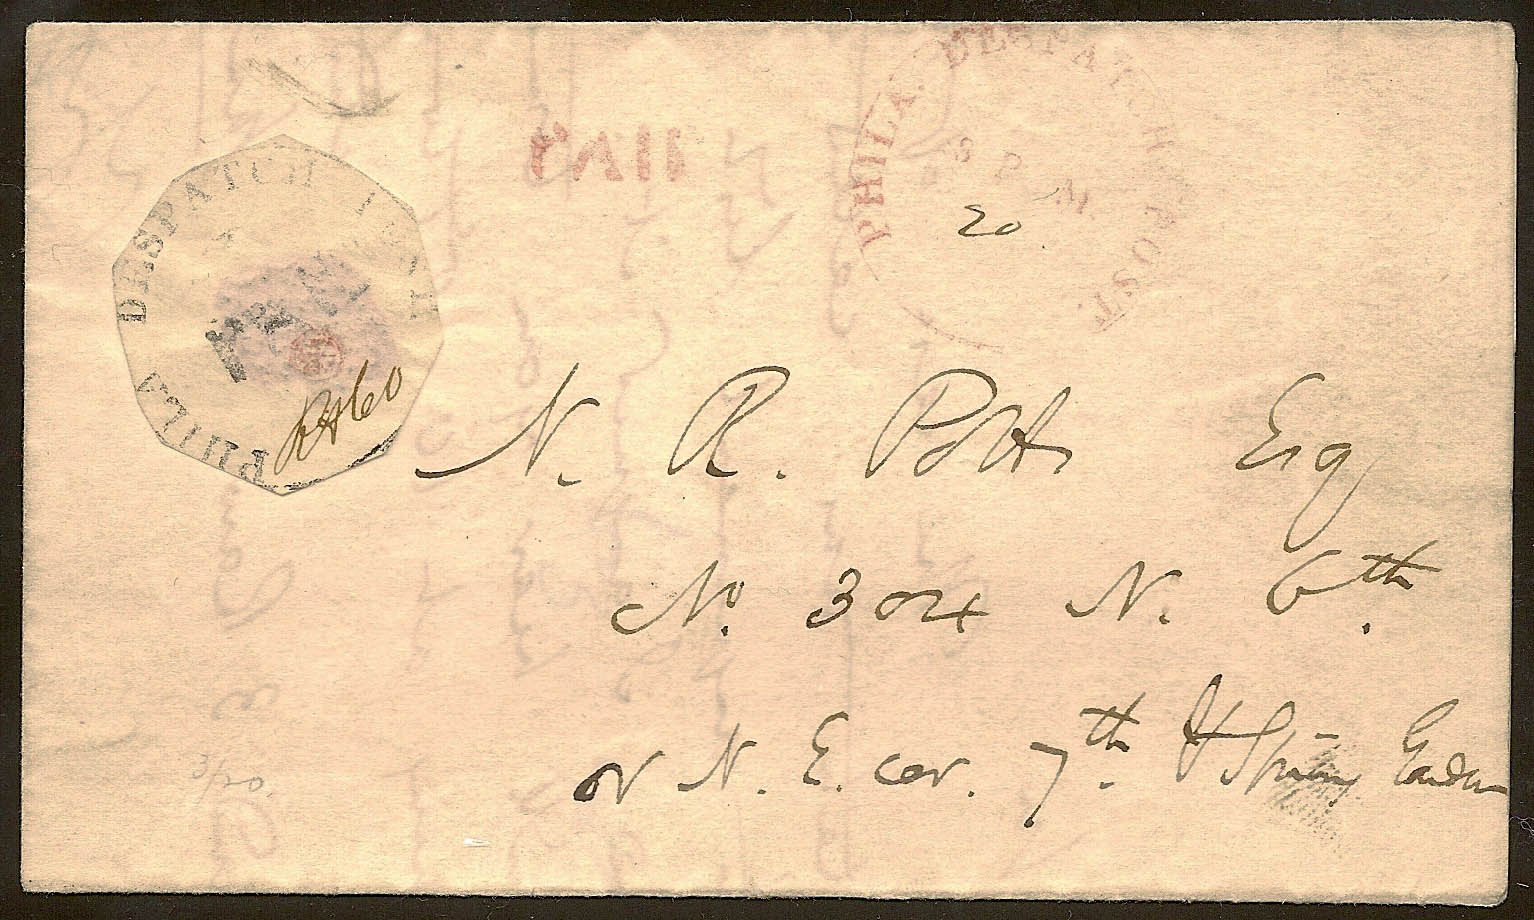 PHILA DESPATCH POST
PHILA. DESPATCH POST.
8 P. M.
20.
R&Co
N. R. Potts Esq
No. 304 N. 6th.
or N. E. cor. 7th. & Spring Garden
3/20.